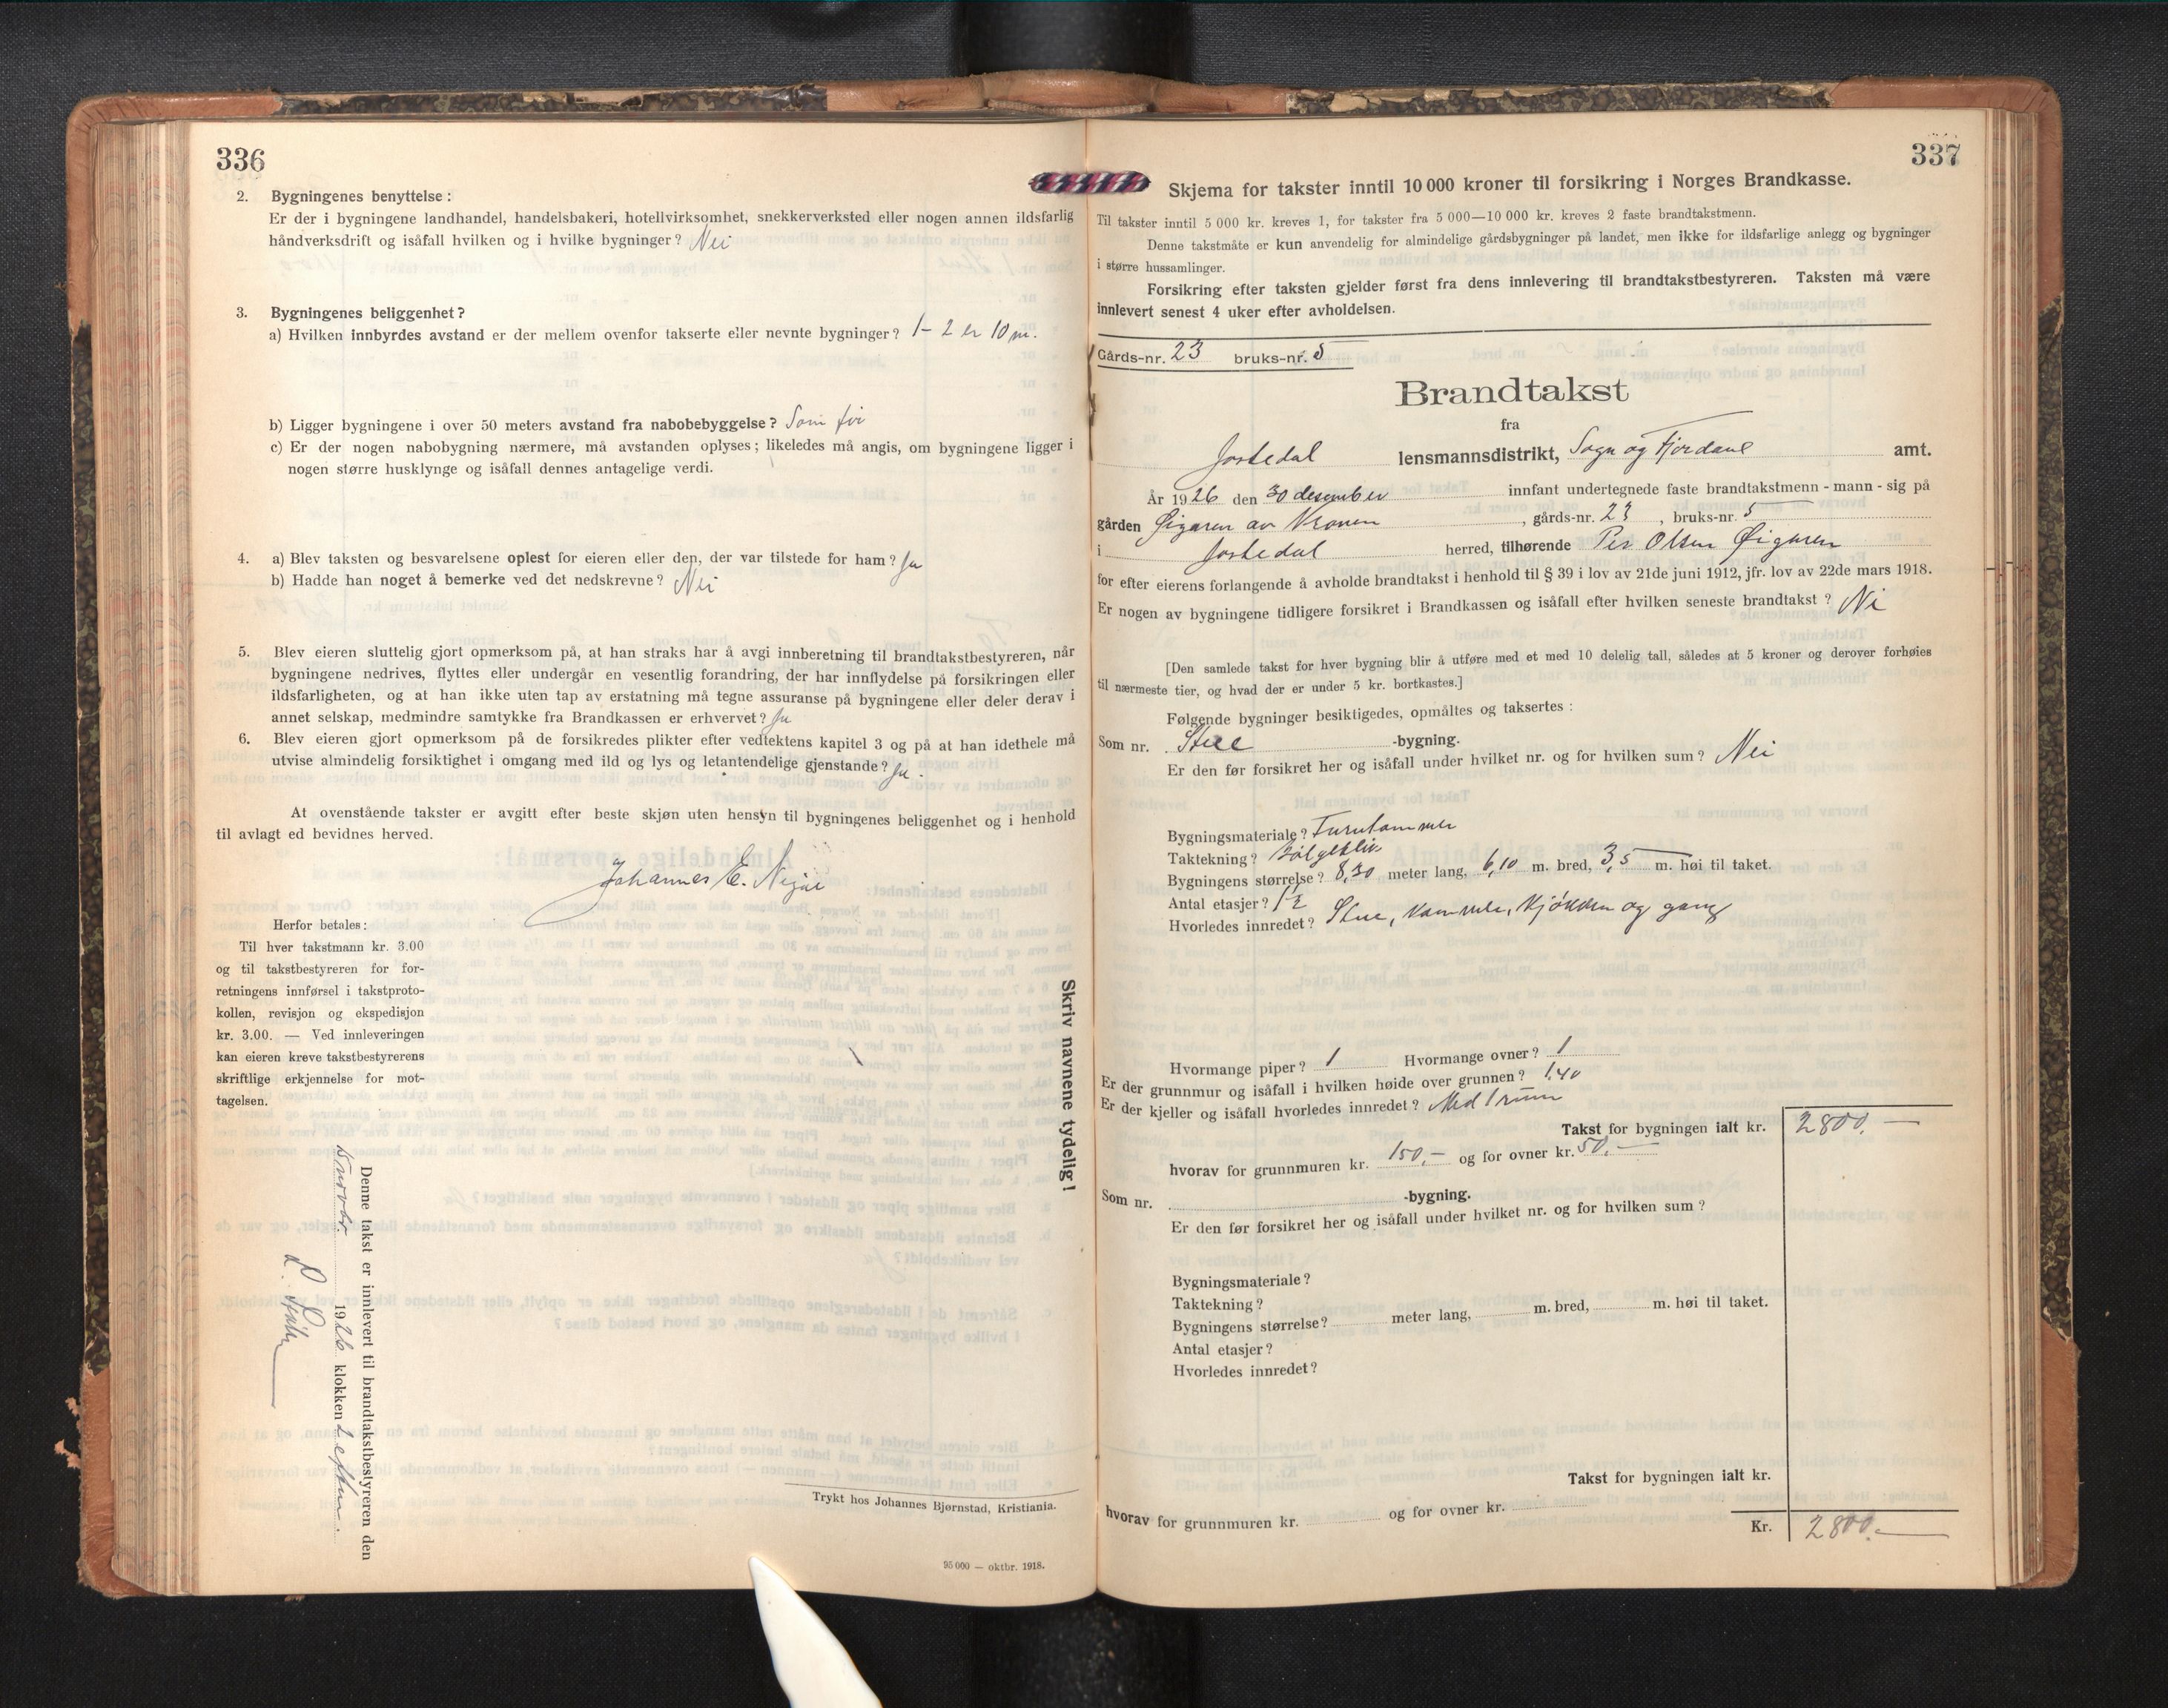 336
2. Bygningenes benyttelse:
Er der i bygningene landhandel, handelsbakeri, hotellvirksomhet, snekkerverksted eller nogen annen ildsfarlig
håndverksdrift og isåfall hvilken og i hvilke bygninger? Nei
3. Bygningenes beliggenhet?
a) Hvilken innbyrdes avstand er der mellem ovenfor takserte eller nevnte bygninger? 1-2 er 10 m.
b) Ligger bygningene i over 50 meters avstand fra nabobebyggelse? Som før
c) Er der nogen nabobygning nærmere, må avstanden oplyses; likeledes må angis, om bygningene ligger i
nogen større husklynge og isåfall dennes antagelige verdi.
4. a) Blev taksten og besvarelsene oplest for eieren eller den, der var tilstede for ham? Ja
b) Hadde han noget å bemerke ved det nedskrevne? Nei
5. Blev eieren sluttelig gjort opmerksom på, at han straks har å avgi innberetning til brandtakstbestyreren, når
bygningene nedrives, flyttes eller undergår en vesentlig forandring, der har innflydelse på forsikringen eller
ildsfarligheten, og at han ikke uten tap av erstatning må tegne assuranse på bygningene eller deler derav i
annet selskap, medmindre samtykke fra Brandkassen er erhvervet? Ja
6. Blev eieren gjort opmerksom på de forsikredes plikter efter vedtektens kapitel 3 og på at han idethele må
utvise almindelig forsiktighet i omgang med ild og lys og letantendelige gjenstande? Ja.
At ovenstående takster er avgitt efter beste skjøn uten hensyn til bygningenes beliggenhet og i henhold
til avlagt ed bevidnes herved.
Johannes E.
Herfor betales:
Til hver takstmann kr. 3.00
og til takstbestyreren for for-
retningens innførsel i takstproto-
kollen, revisjon og ekspedisjon
kr. 3.00. — Ved innleveringen
kan eieren kreve takstbestyrerens
skriftlige erkjennelse for mot-
tagelsen.
Skriv navnene tydelig!
Denne takst er innlevert til brandtakstbestyreren den
1926 klokken
Trykt hos Johannes Bjørnstad, Kristiania.
95 000 — oktbr. 1918.
337
Skjema for takster inntil 10 000 kroner til forsikring i Norges Brandkasse.
Til takster inntil 5 000 kr. kreves 1, for takster fra 5 000—10 000 kr. kreves 2 faste brandtakstmenn.
Denne takstmåte er kun anvendelig for almindelige gårdsbygninger på landet, men ikke for ildsfarlige anlegg og bygninger
i større hussamlinger.
Forsikring efter taksten gjelder først fra dens innlevering til brandtakstbestyreren. Taksten må være
innlevert senest 4 uker efter avholdelsen.
Gårds-nr. 23 bruks-nr. 5
Brandtakst
fra
Jostedal lensmannsdistrikt, Sogn og Fjordane amt.
År 1926 den 30 desember innfant undertegnede faste brandtakstmenn - mann - sig på
gården Øigaren av Kronen, gårds-nr. 23, bruks-nr. 5
i Jostedal herred, tilhørende Per Olsen Øigaren
for efter eierens forlangende å avholde brandtakst i henhold til § 39 i lov av 21de juni 1912, jfr. lov av 22de mars 1918.
Er nogen av bygningene tidligere forsikret i Brandkassen og isåfall efter hvilken seneste brandtakst? Nei
[Den samlede takst for hver bygning blir å utføre med et med 10 delelig tall, således at 5 kroner og derover forhøies
til nærmeste tier, og hvad der er under 5 kr. bortkastes.]
Følgende bygninger besiktigedes, opmåltes og taksertes:
Som nr. Stue -bygning.
Er den før forsikret her og isåfall under hvilket nr. og for hvilken sum? Nei
Bygningsmateriale? Furutømmer
Taktekning? Bølgeblik
Bygningens størrelse? 8,30 meter lang, 6,10 m. bred, 3,5 m. høi til taket.
Antal etasjer? 1½
Hvorledes innredet? Stue, kammer, kjøkken og gang
Hvormange piper? 1 Hvormange ovner? 1
Er der grunnmur og isåfall i hvilken høide over grunnen? 1,40
Er der kjeller og isåfall hvorledes innredet? Med 1 rum
Takst for bygningen ialt kr. 2800,—
hvorav for grunnmuren kr. 150,— og for ovner kr. 50,—
Som nr. -bygning.
Er den før forsikret her og isåfall under hvilket nr. og for hvilken sum?
Bygningsmateriale?
Taktekning?
Bygningens størrelse? meter lang, m. bred, m. høi til taket.
Antal etasjer?
Hvorledes innredet?
Takst for bygningen ialt kr.
hvorav for grunnmuren kr. og for ovner kr.
Kr. 2800.—